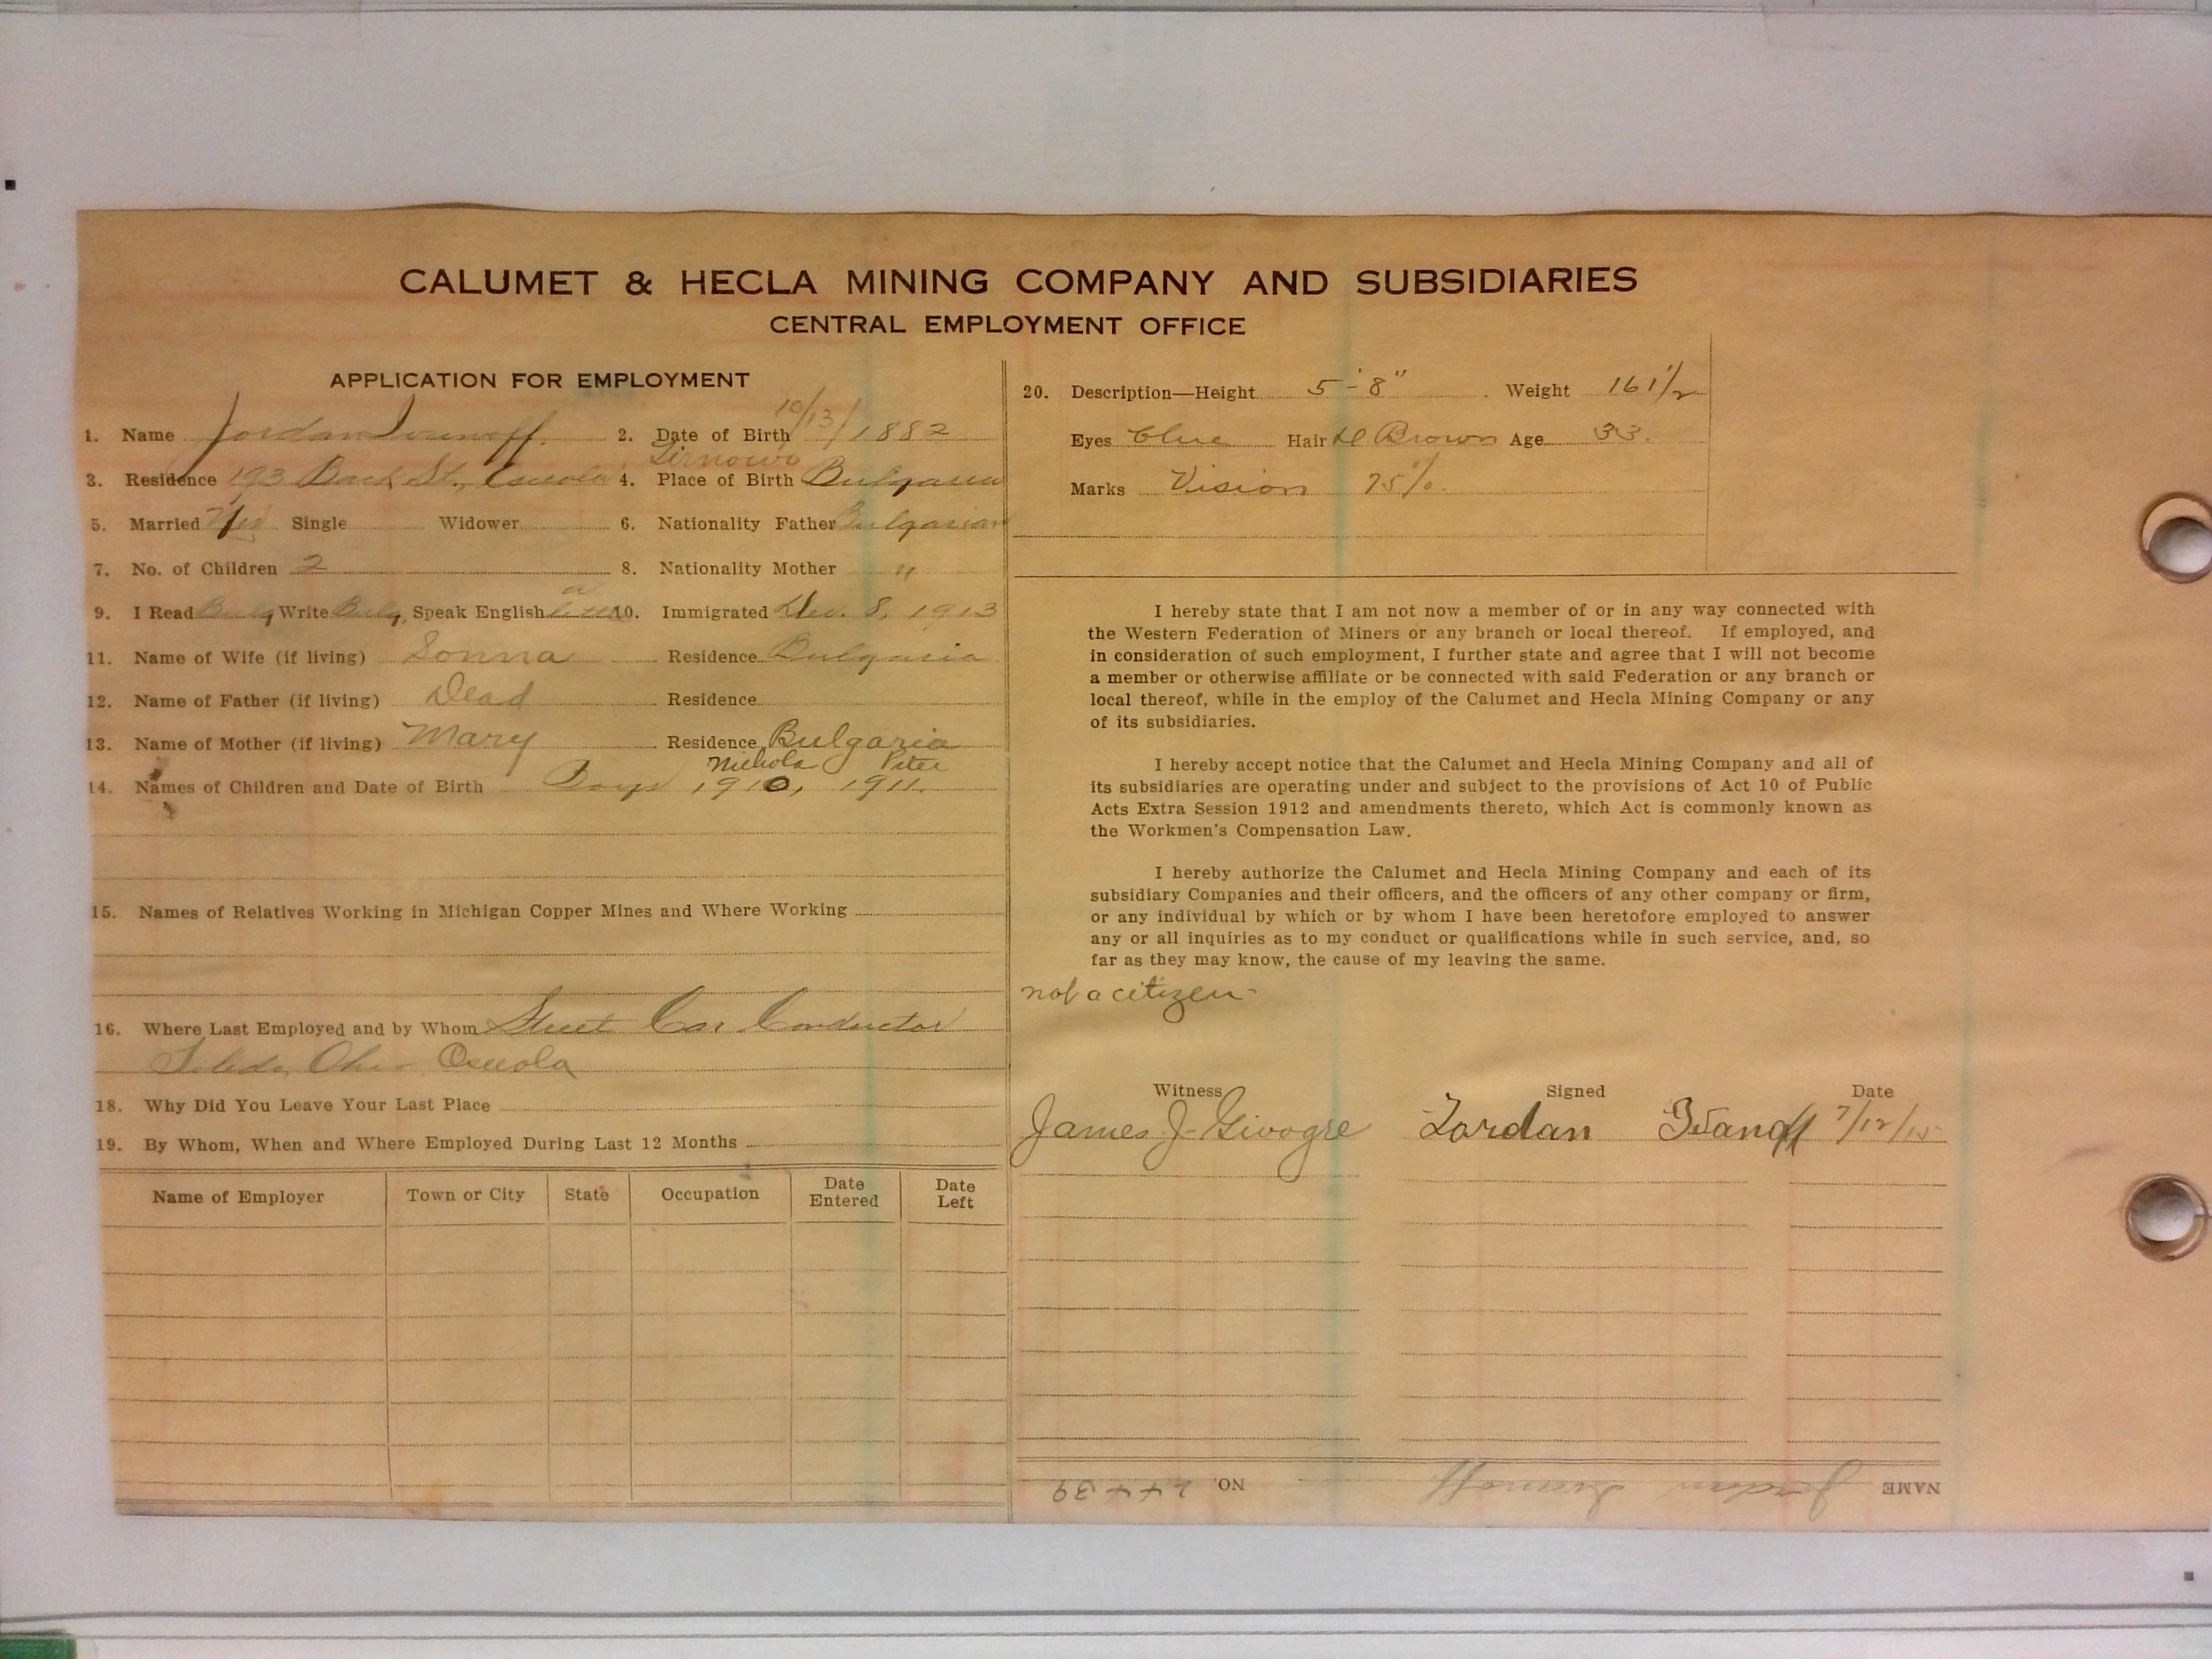 CALUMET & HECLA MINING COMPANY AND SUBSIDIARIES
CENTRAL EMPLOYMENT OFFICE
APPLICATION FOR EMPLOYMENT
1. Name Jordan Ivanoff. 2. Date of Birth 10/13/1882
Tirnowo
3. Residence 193 Back St., Osceola 4. Place of Birth Bulgaria
5. Married Yes Single Widower 6. Nationality Father Bulgarian
7. No. of Children 2 8. Nationality Mother "
9. I Read Bulg Write Bulg, Speak English a little 10. Immigrated Dec. 8, 1913
11. Name of Wife (if living) Sonna Residence Bulgaria
12. Name of Father (if living) Dead Residence
13. Name of Mother (if living) Mary Residence Bulgaria
Nichola Peter
14. Names of Children and Date of Birth Boys 1910, 1911.
15. Names of Relatives Working in Michigan Copper Mines and Where Working
16. Where Last Employed and by Whom Street Car Conductor
Toledo, Ohio Osceola
18. Why Did You Leave Your Last Place
19. By Whom, When and Where Employed During Last 12 Months
Name of Employer Town or City State Occupation Date Entered Date Left
20. Description—Height 5'-8" Weight 161 1/2
Eyes blue Hair D Brown Age 33.
Marks Vision 75%.
I hereby state that I am not now a member of or in any way connected with
the Western Federation of Miners or any branch or local thereof. If employed, and
in consideration of such employment, I further state and agree that I will not become
a member or otherwise affiliate or be connected with said Federation or any branch or
local thereof, while in the employ of the Calumet and Hecla Mining Company or any
of its subsidiaries.
I hereby accept notice that the Calumet and Hecla Mining Company and all of
its subsidiaries are operating under and subject to the provisions of Act 10 of Public
Acts Extra Session 1912 and amendments thereto, which Act is commonly known as
the Workmen's Compensation Law.
I hereby authorize the Calumet and Hecla Mining Company and each of its
subsidiary Companies and their officers, and the officers of any other company or firm,
or any individual by which or by whom I have been heretofore employed to answer
any or all inquiries as to my conduct or qualifications while in such service, and, so
far as they may know, the cause of my leaving the same.
not a citizen
Witness Signed Date
James J. Givogre Jordan Ivanoff 7/12/15
NAME Jordan Ivanoff NO. 24439